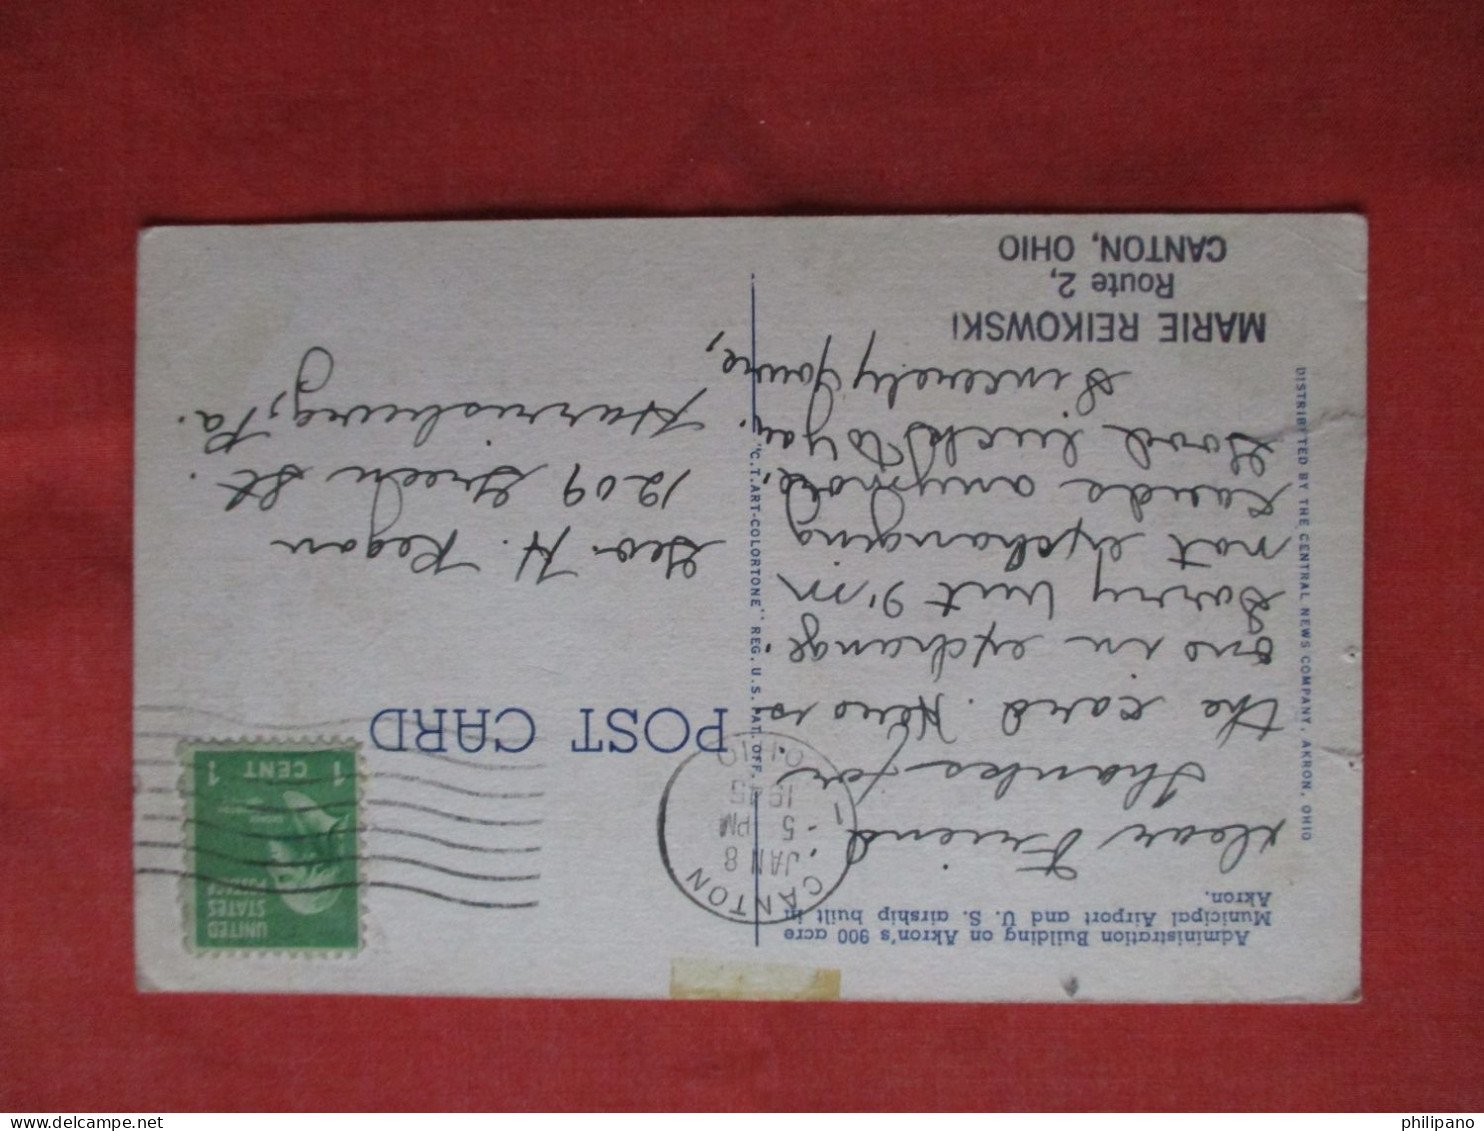 Administration Building on Akron's 900 acre
Municipal Airport and U. S. airship built in
Akron.
Dear Friend
Thanks for
the card. Here is
one in exchange.
Sorry but I'm
not exchanging
cards anymore,
Good luck to you.
Sincerely Yours,
MARIE REIKOWSKI
Route 2,
CANTON, OHIO
DISTRIBUTED BY THE CENTRAL NEWS COMPANY, AKRON, OHIO
"C.T.ART-COLORTONE" REG. U.S. PAT. OFF.
CANTON
JAN 8
5 PM
1945
OHIO
1
POST CARD
UNITED
STATES
POSTAGE
1 CENT 1
Geo. H. Regan
1209 Green St.
Harrisburg, Pa.
philipano